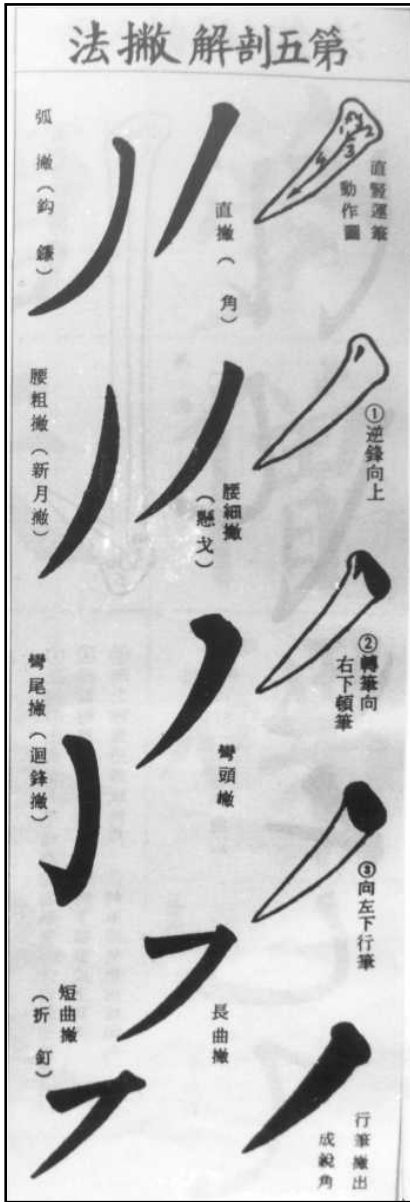 第五剖解撇法
直豎運筆
動作圖
①逆鋒向上
②轉筆向
右下頓筆
③向左下行筆
行筆撇出
成銳角
直撇（ 角）
腰細撇
（懸戈）
彎頭撇
長曲撇
弧撇（鈎鐮）
腰粗撇（新月撇）
彎尾撇（迴鋒撇）
短曲撇
（折釘）